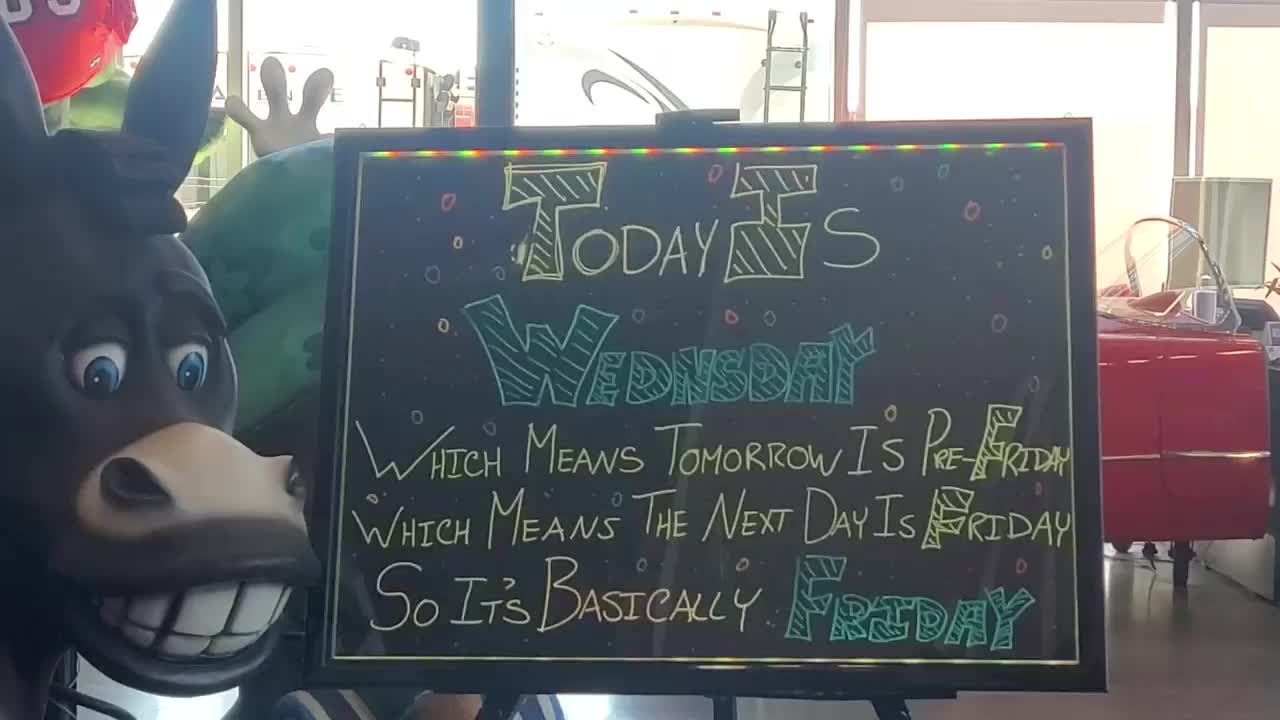 Today Is
Wednsday
Which Means Tomorrow Is Pre-Friday
Which Means The Next Day Is Friday
So It's Basically Friday